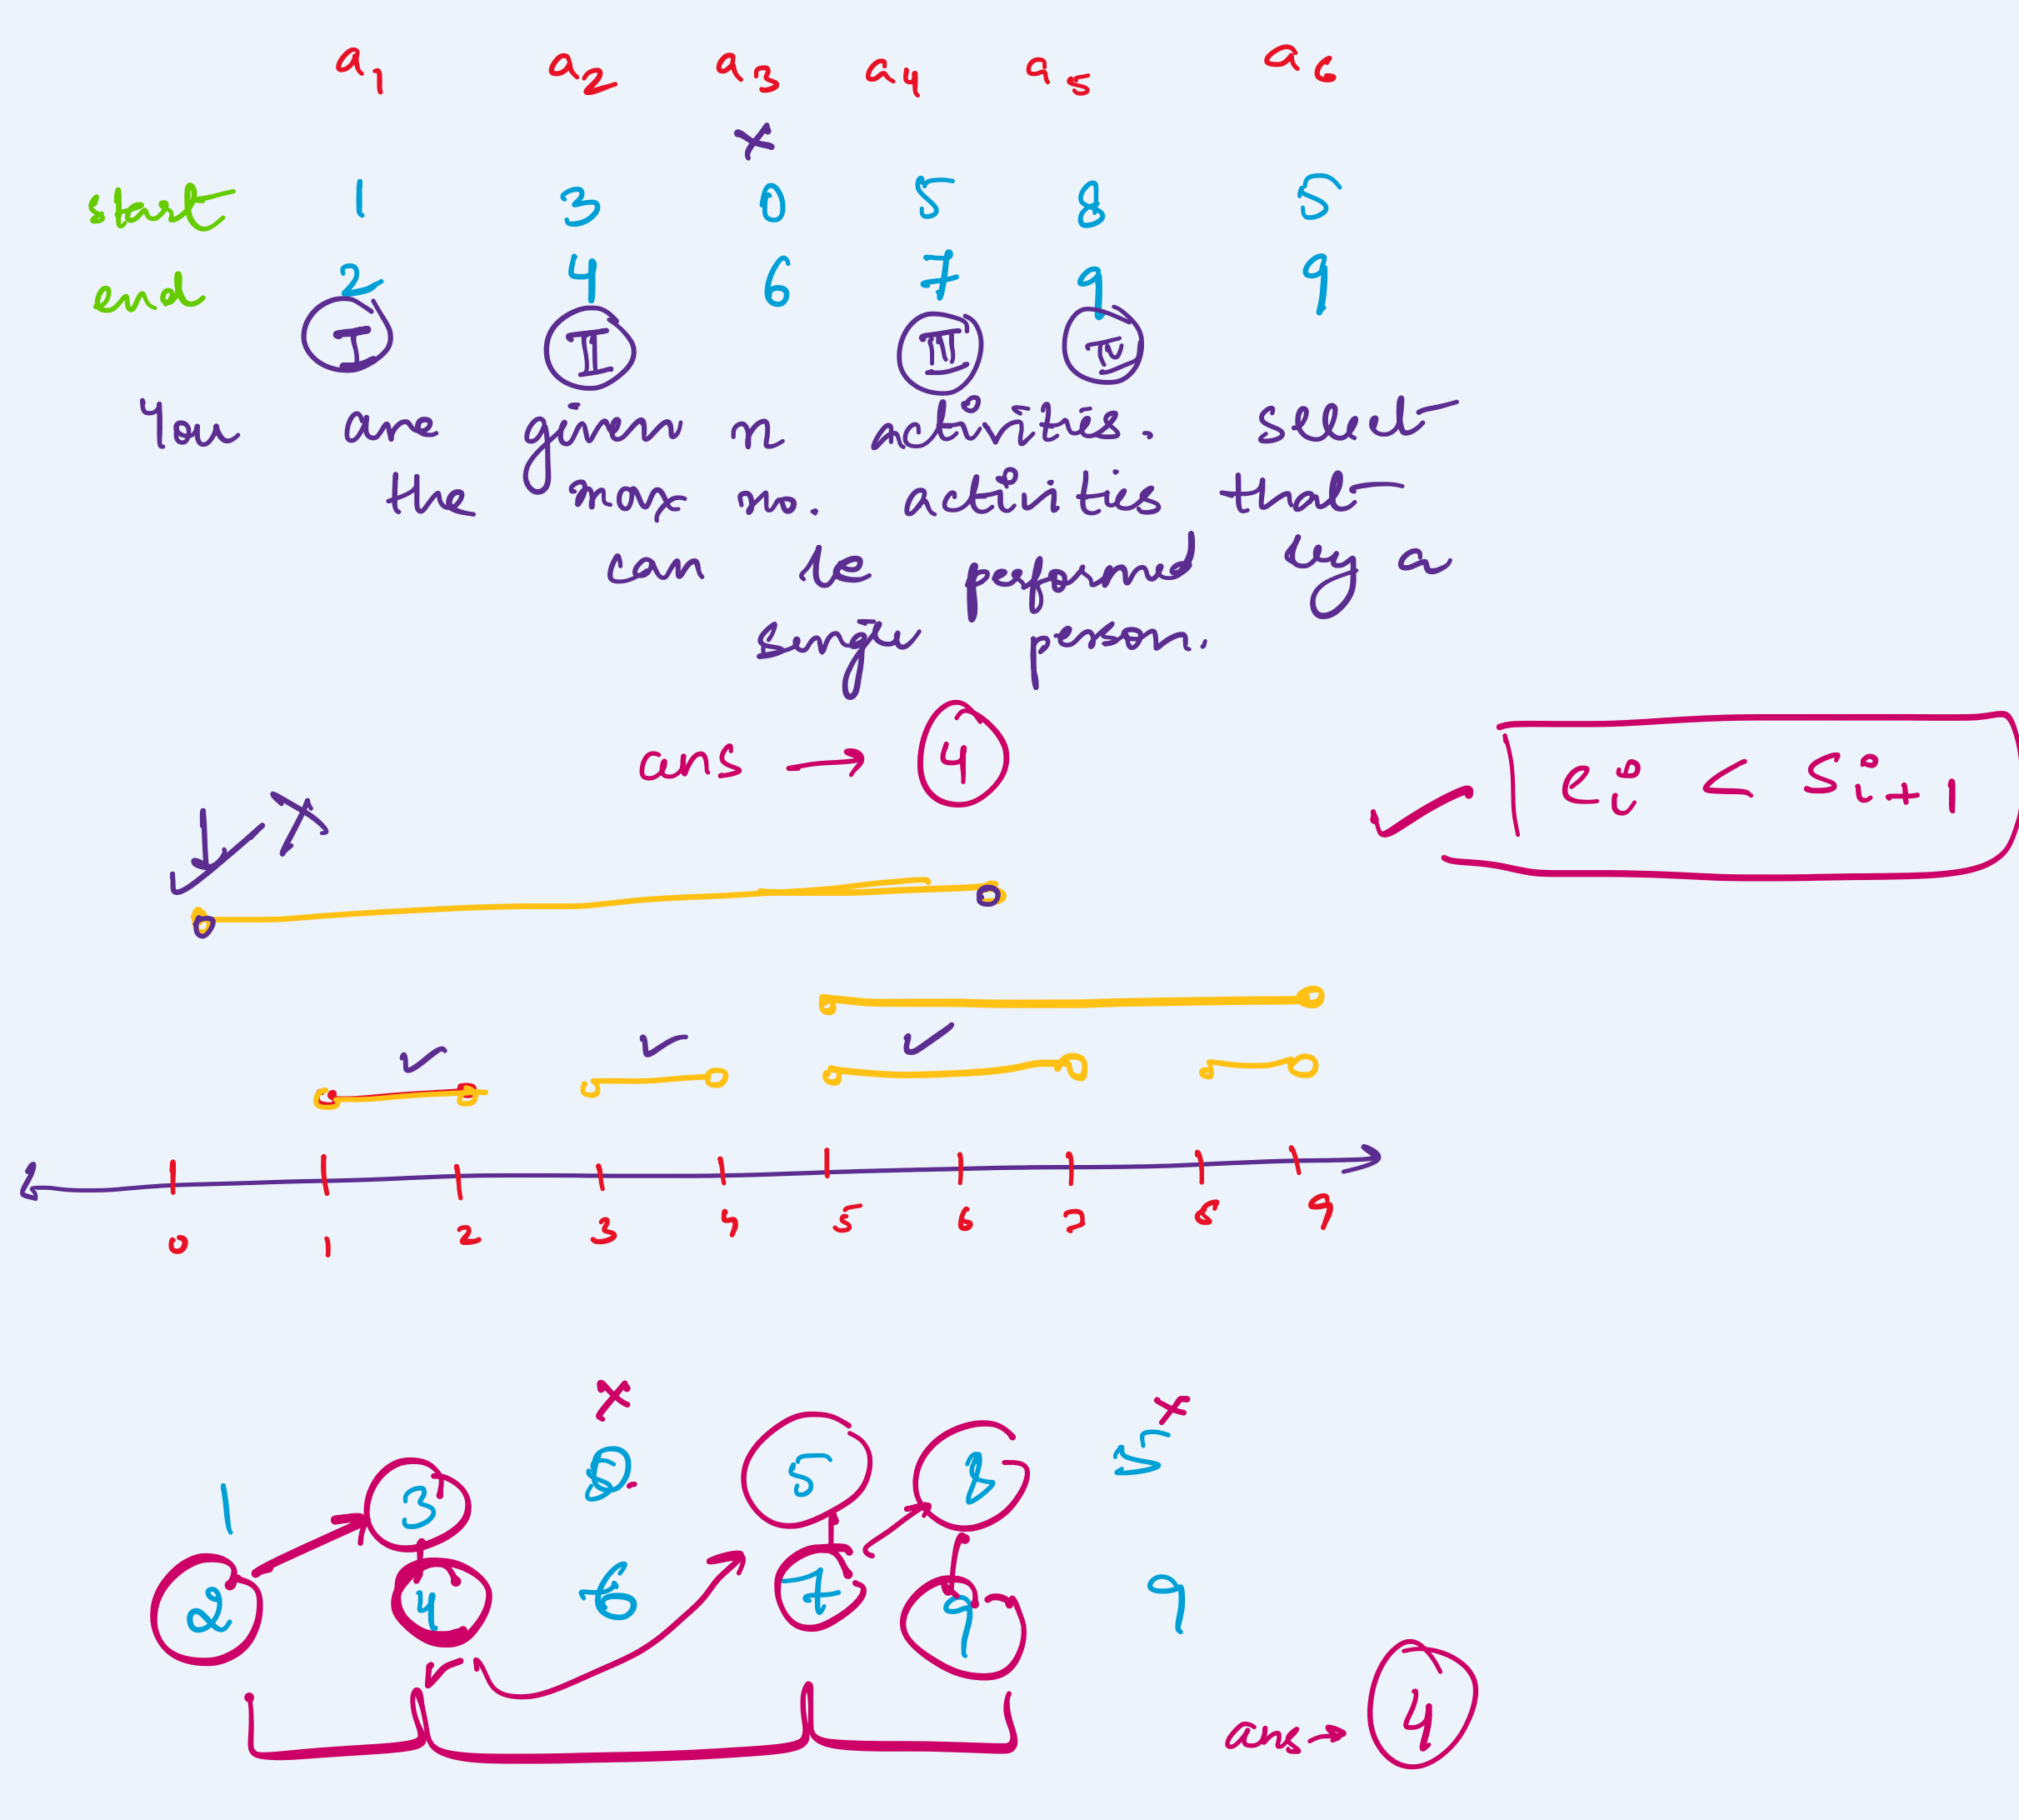 a1 a2 a3 a4 a5 a6
x
start 1 3 0 5 8 5
end 2 4 6 7 9 9
I II III IV
You are given n activities. select
the max no. activities that
can be performed by a
single person.
ans → 4
ei < si+1
0 1 2 3 4 5 6 7 8 9
x x
1 3 5 8 5
2 4 6 7 9 9
ans → 4